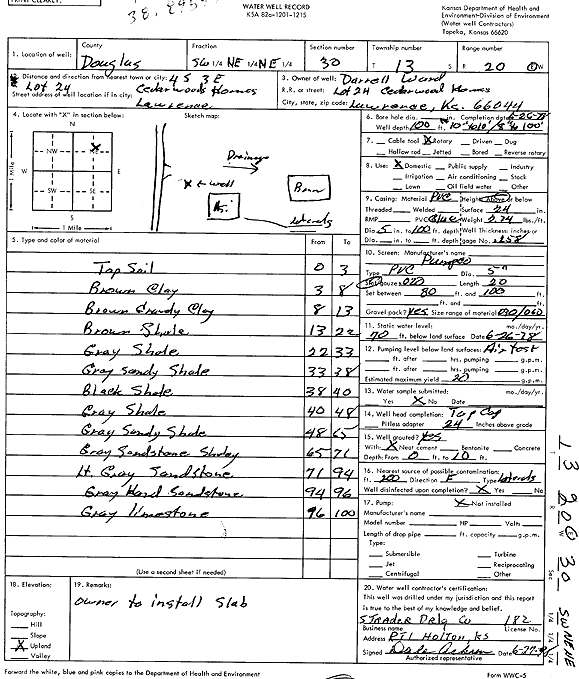 WATER WELL RECORD
KSA 82a-1201-1215
Kansas Department of Health and
Environment-Division of Environment
(Water well Contractors)
Topeka, Kansas 66620
1. Location of well:
County
Douglas
Fraction
SW 1/4 NE 1/4 NE 1/4
Section number
30
Township number
T 13 S
Range number
R 20 E/W
Distance and direction from nearest town or city: 4 S 3 E
Lot 24 Cedarwoods Homes
Street address of well location if in city: Lawrence
3. Owner of well: Darrell Ward
R.R. or street: Lot 24 Cedarwood Homes
City, state, zip code: Lawrence, Ks. 66044
4. Locate with "X" in section below:
Sketch map:
N
NW
NE
W
E
SW
SE
S
1 Mile
1 Mile
Drainage
X ← well
Barn
laterals
6. Bore hole dia. in. Completion date 6-26-78
Well depth 100 ft. 10" to 10' / 8" to 100'
7. Cable tool X Rotary Driven Dug
Hollow rod Jetted Bored Reverse rotary
8. Use: X Domestic Public supply Industry
Irrigation Air conditioning Stock
Lawn Oil field water Other
9. Casing: Material PVC Height: Above or below
Threaded Welded Surface 24 in.
RMP PVC Glue Weight 2.24 lbs./ft.
Dia. 5 in. to 100 ft. depth Wall Thickness: inches or
Dia. in. to ft. depth gage No. .258
10. Screen: Manufacturer's name
Pumpco
Type PVC Dia. 5"
Slot/gauze .020 Length 20
Set between 80 ft. and 100 ft.
ft. and ft.
Gravel pack? Yes Size range of material 030/060
11. Static water level: mo./day/yr.
70 ft. below land surface Date 6-26-78
12. Pumping level below land surfaces: Air test
ft. after hrs. pumping g.p.m.
ft. after hrs. pumping g.p.m.
Estimated maximum yield 20 g.p.m.
13. Water sample submitted: mo./day/yr.
Yes X No Date
14. Well head completion: Top Cap
Pitless adapter 24 Inches above grade
15. Well grouted? Yes
With: X Neat cement Bentonite Concrete
Depth: From 0 ft. to 10 ft.
16. Nearest source of possible contamination:
ft. 200 Direction E Type laterals
Well disinfected upon completion? X Yes No
17. Pump: X Not installed
Manufacturer's name
Model number HP Volts
Length of drop pipe ft. capacity g.p.m.
Type:
Submersible Turbine
Jet Reciprocating
Centrifugal Other
5. Type and color of material From To
Top Soil 0 3
Brown Clay 3 8
Brown Grundy Clay 8 13
Brown Shale 13 22
Gray Shale 22 33
Gray Sandy Shale 33 38
Black Shale 38 40
Gray Shale 40 48
Gray Sandy Shale 48 65
Gray Sandstone Shaley 65 71
Lt. Gray Sandstone 71 94
Gray Hard Sandstone 94 96
Gray Limestone 96 100
(Use a second sheet if needed)
18. Elevation:
Topography:
Hill
Slope
X Upland
Valley
19. Remarks:
owner to install slab
20. Water well contractor's certification:
This well was drilled under my jurisdiction and this report
is true to the best of my knowledge and belief.
STRADER Drlg Co 182
Business name License No.
Address RT1 Holton, KS
Signed Date 6-27-78
Authorized representative
Forward the white, blue and pink copies to the Department of Health and Environment
Form WWC-5
T 13 R 20 E W Sec. 30 SW NE NE 1/4 1/4 1/4